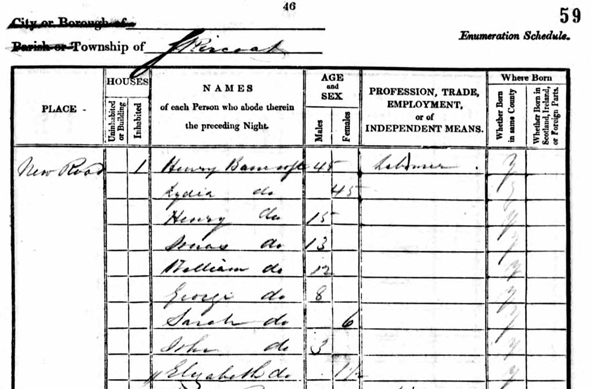 46
59
City or Borough of
Parish or Township of Skircoat
Enumeration Schedule.
PLACE
HOUSES
Uninhabited or Building
Inhabited
NAMES
of each Person who abode therein
the preceding Night.
AGE
and
SEX
Males
Females
PROFESSION, TRADE,
EMPLOYMENT,
or of
INDEPENDENT MEANS.
Where Born
Whether Born in same County
Whether Born in Scotland, Ireland, or Foreign Parts.
New Road 1 Henry Bancroft 45 y
Lydia do 45 y
Henry do 15 y
Jonas do 13 y
William do 12 y
George do 8 y
Sarah do 6 y
John do 3 y
Elizabeth do y